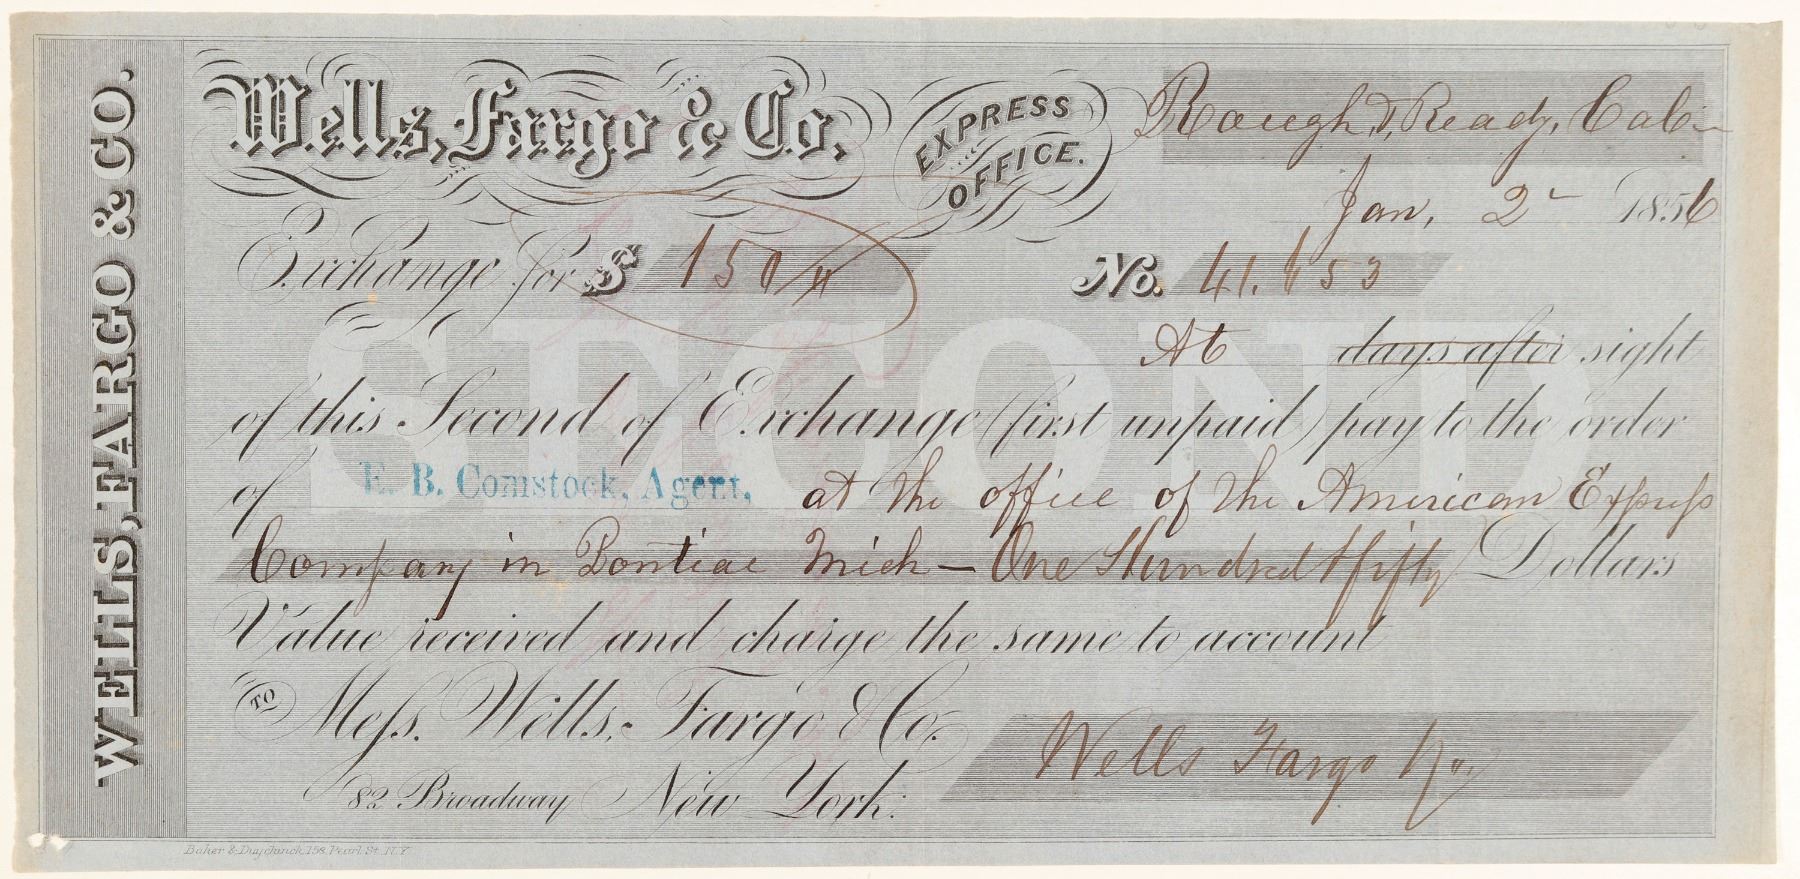 WELLS, FARGO & CO.
Wells, Fargo & Co.
EXPRESS OFFICE.
Rough & Ready, Cal
Jan, 2 1856
Exchange for $ 150
No. 41.653
SECOND
At days after sight
of this Second of Exchange (first unpaid) pay to the order
of E. B. Comstock, Agent, at the office of the American Express
Company in Pontiac Mich — One Hundred & fifty Dollars
Value received and charge the same to account
TO Mess. Wells, Fargo & Co.
82 Broadway New York.
Wells Fargo & Co
Baker & Duyckinck, 158 Pearl St. N.Y.